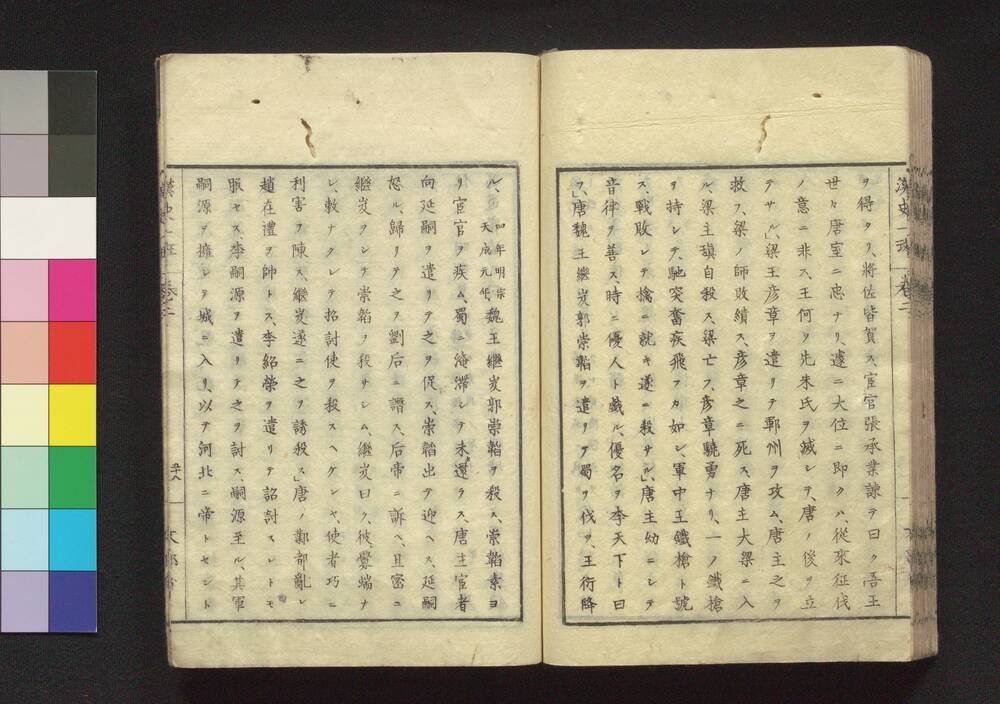 漢史一班 巻二
ヲ得タリ、將佐皆賀ス、宦官張承業諫テ曰ク吾王
世々唐室ニ忠ナリ、遽ニ大位ニ即クハ、從來征伐
ノ意ニ非ス、王何ソ先朱氏ヲ滅シテ、唐ノ後ヲ立
テサル」梁王彦章ヲ遣リテ鄆州ヲ攻ム、唐主之ヲ
救フ、梁ノ師敗績ス、彦章之ニ死ス、唐主大梁ニ入
ル、梁主瑱自殺ス、梁亡フ、彦章驍勇ナリ、一ノ鐵槍
ヲ持シテ、馳突奮疾飛フカ如シ、軍中王鐵槍ト號
ス、戰敗レテ擒ニ就キ遂ニ殺サル」唐主幼ニシテ
音律ヲ善ス、時ニ優人ト戯ル、優名ヲ李天下ト曰
フ」唐魏王繼岌郭崇韜ヲ遣リテ蜀ヲ伐ツ、王衍降
ル、四年明宗天成元年、魏王繼岌郭崇韜ヲ殺ス、崇韜素ヨ
リ宦官ヲ疾ム、蜀ニ淹滯シテ未還ラス、唐主宦者
向延嗣ヲ遣リテ之ヲ促ス、崇韜出テ迎ヘス、延嗣
怒ル、歸リテ之ヲ劉后ニ譖ス、后帝ニ訴ヘ、且密ニ
繼岌ヲシテ崇韜ヲ殺サシム、繼岌曰ク、彼釁端ナ
シ、敕ナクシテ招討使ヲ殺スヘケンヤ、使者巧ニ
利害ヲ陳ス、繼岌遂ニ之ヲ誘殺ス」唐ノ鄴都亂レ
趙在禮ヲ帥トス、李紹榮ヲ遣リテ詔討スレトモ
服セス、李嗣源ヲ遣リテ之ヲ討ス、嗣源至ル、其軍
嗣源ヲ擁シテ城ニ入リ、以テ河北ニ帝トセント
漢史一班 巻二